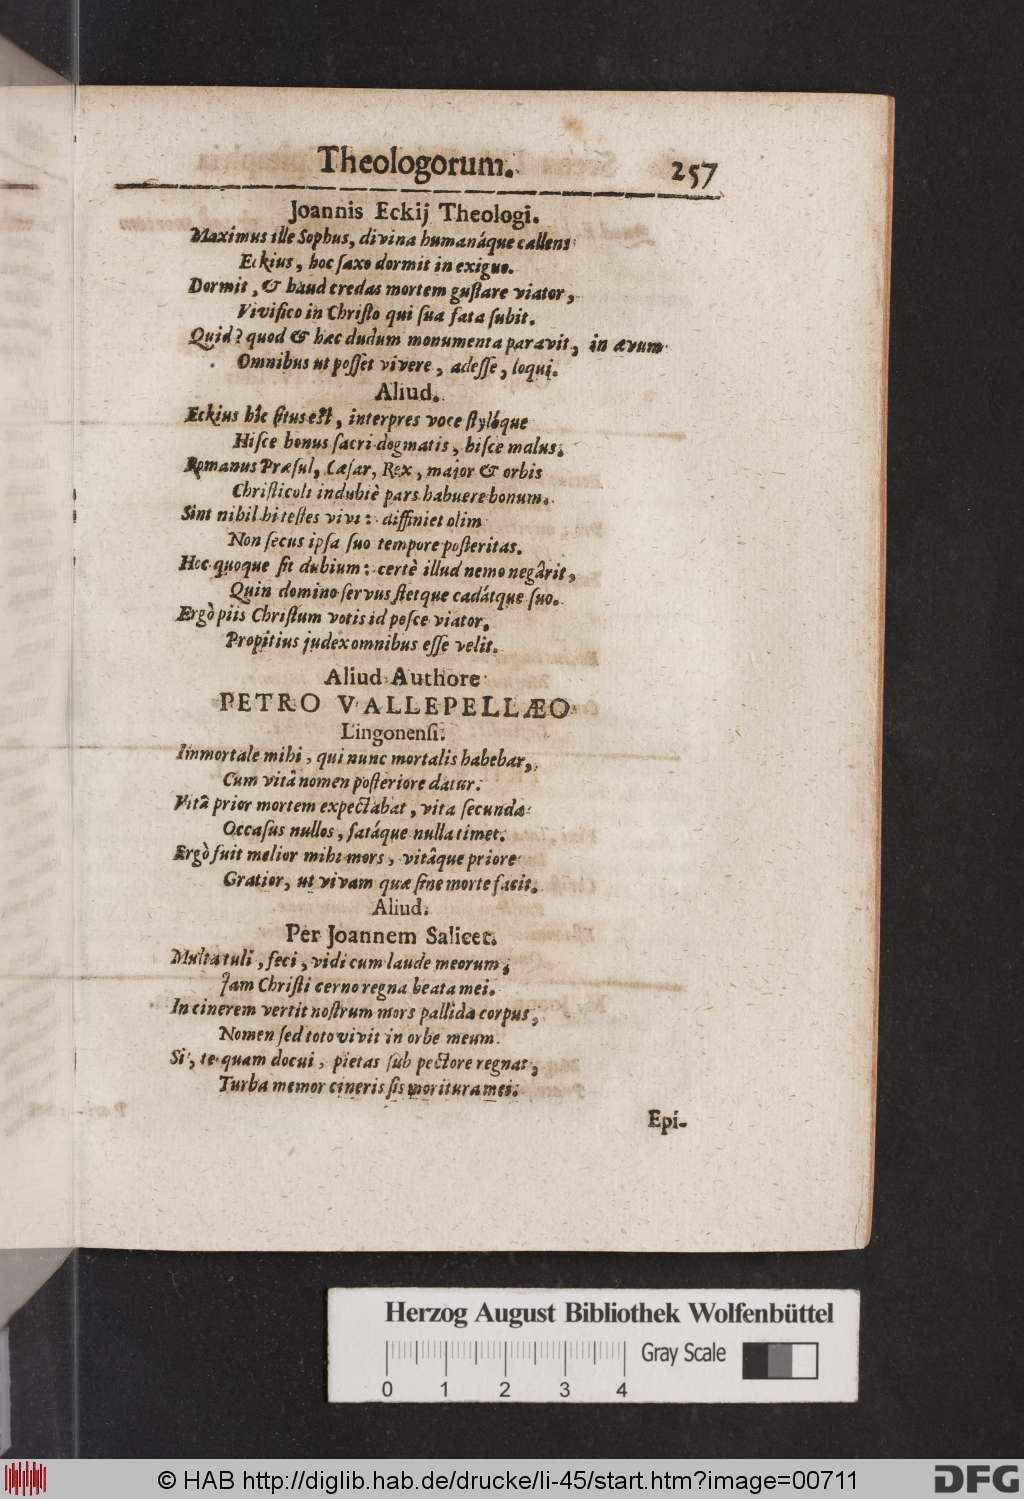 Theologorum. 257
Joannis Eckij Theologi.
Maximus ille Sophus, divina humanáque callens
Eckius, hoc ſaxo dormit in exiguo.
Dormit, & haud credas mortem guſtare viator,
Vivifico in Chriſto qui ſua fata ſubit.
Quid? quod & hæc dudum monumenta paravit, in ævum
Omnibus ut poſſet vivere, adeſſe, loqui.
Aliud.
Eckius hîc ſitus eſt, interpres voce ſtylóque
Hiſce bonus ſacri dogmatis, hiſce malus.
Romanus Præſul, Cæſar, Rex, major & orbis
Chriſticoli indubiè pars habuere bonum.
Sint nihil hi teſtes vivi: diffiniet olim
Non ſecus ipſa ſuo tempore poſteritas.
Hoc quoque ſit dubium: certè illud nemo negârit,
Quin domino ſervus ſtetque cadátque ſuo.
Ergò piis Chriſtum votis id poſce viator.
Propitius judex omnibus eſſe velit.
Aliud Authore
PETRO VALLEPELLÆO
Lingonenſi.
Immortale mihi, qui nunc mortalis habebar,
Cum vitâ nomen poſteriore datur.
Vitâ prior mortem expectabat, vita ſecunda
Occaſus nullos, fatáque nulla timet.
Ergò fuit melior mihi mors, vitâque priore
Gratior, ut vivam quæ ſine morte facit.
Aliud.
Per Joannem Salicet.
Multa tuli, feci, vidi cum laude meorum,
Jam Chriſti cerno regna beata mei.
In cinerem vertit noſtrum mors pallida corpus,
Nomen ſed toto vivit in orbe meum.
Si, te quam docui, pietas ſub pectore regnat,
Turba memor cineris ſis moritura mei.
Epi-
Herzog August Bibliothek Wolfenbüttel
Gray Scale
0 1 2 3 4
© HAB http://diglib.hab.de/drucke/li-45/start.htm?image=00711
DFG